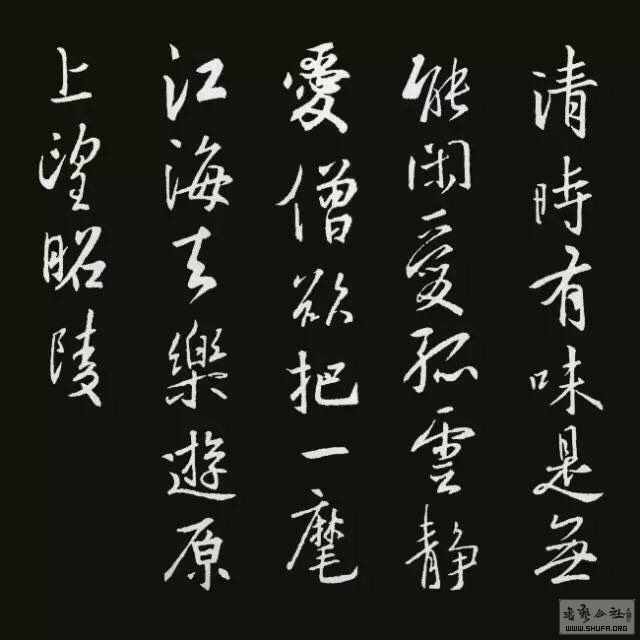 清時有味是無
能閑愛孤雲靜
愛僧欲把一麾
江海去樂遊原
上望昭陵
书艺公社
WWW.SHUFA.ORG